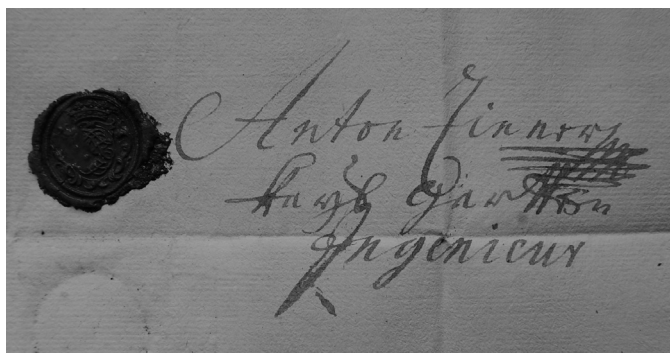 Anton Zinner
kayß Gartten
Ingenieur